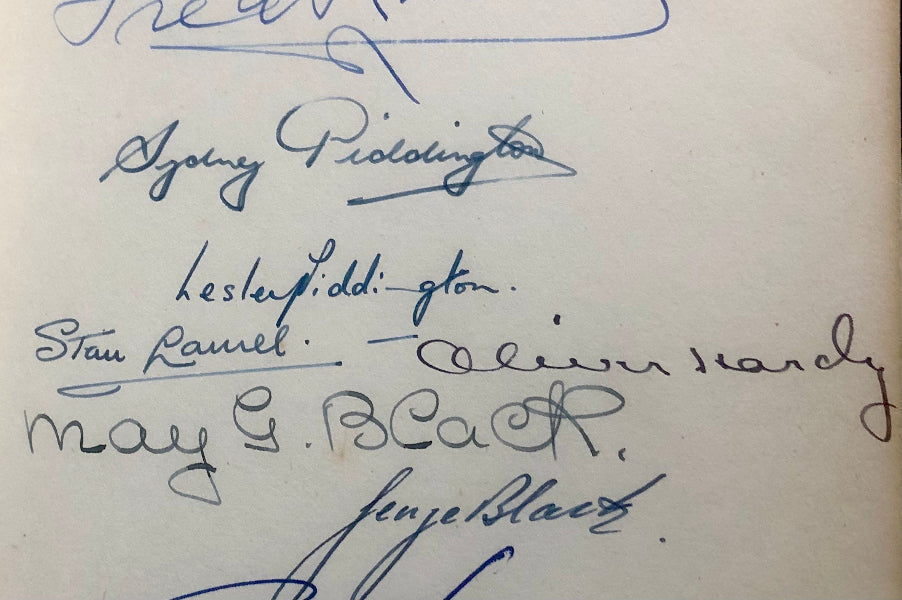 Fred
Sydney Piddington
Lesley Piddington.
Stan Laurel. - Oliver Hardy
May G. Black.
George Black.